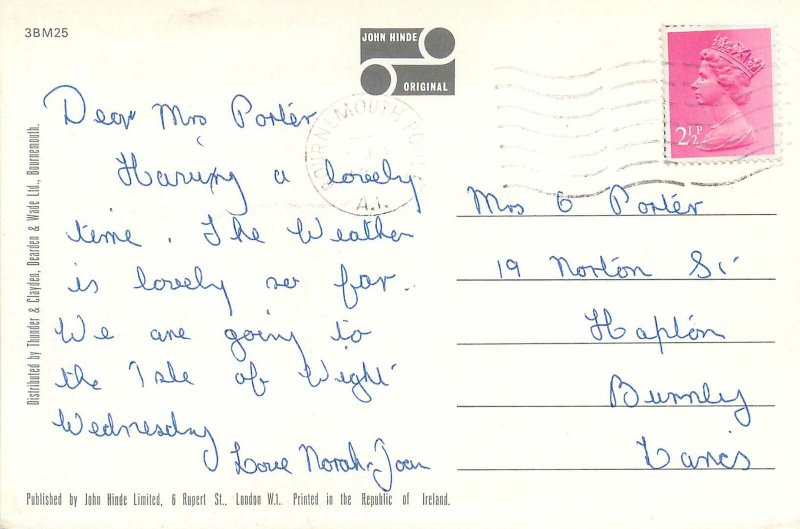 3BM25
JOHN HINDE
ORIGINAL
2½P
BOURNEMOUTH
A.I.
Dear Mrs Porter
Having a lovely
time. The Weather
is lovely so far.
We are going to
the Isle of Wight
Wednesday
Love Norah-Joan
Mrs C Porter
19 Norton St
Hapton
Burnley
Lancs
Distributed by Thunder & Clayden, Dearden & Wade Ltd., Bournemouth.
Published by John Hinde Limited, 6 Rupert St., London W.1. Printed in the Republic of Ireland.